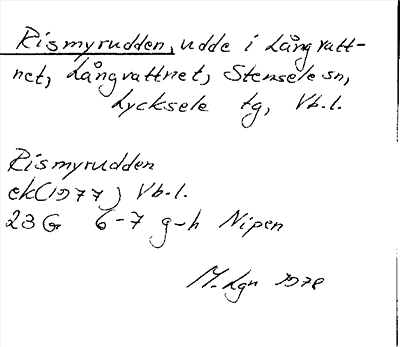 Rismyrudden, udde i Långvatt-
net, Långvattnet, Stensele sn,
Lycksele tg, Vb.l.
Rismyrudden
ek(1977) Vb.l.
23G 6-7 g-h Nipen
M. Lgn 1978